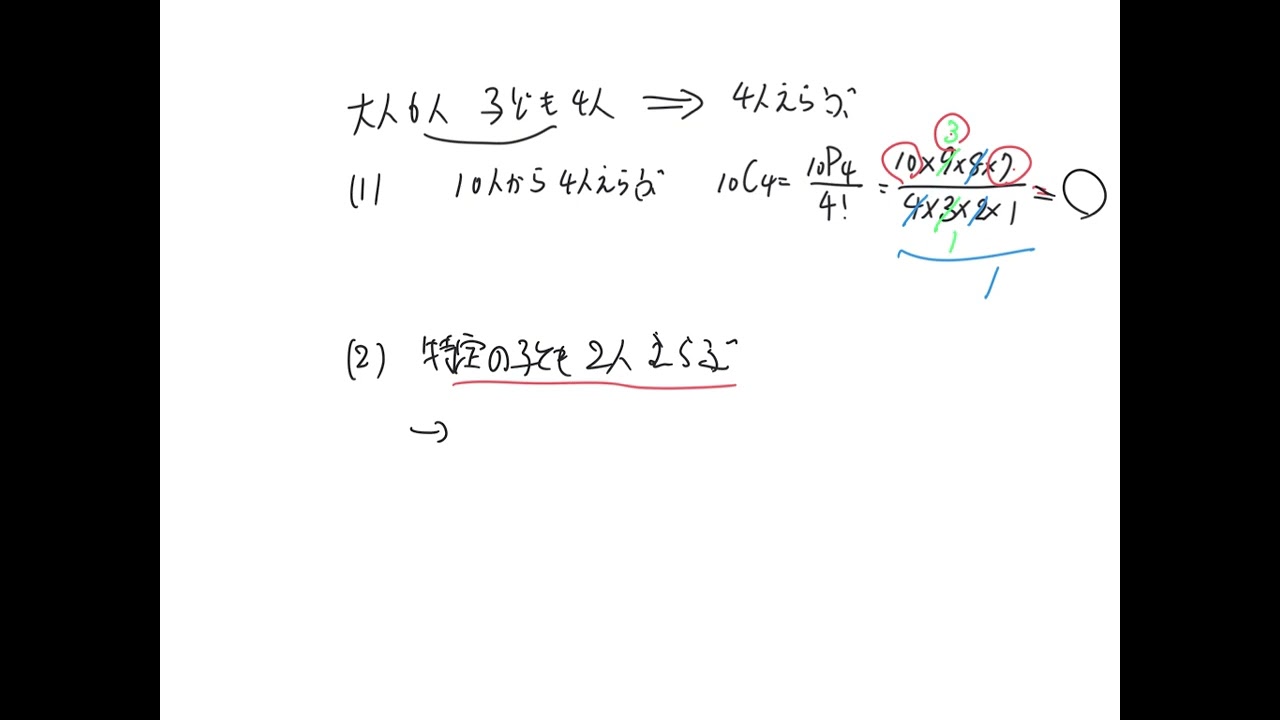 大人6人 子ども4人 ⇒ 4人えらぶ
(1) 10人から4人えらぶ 10C4 = 10P4/4! = 10×9×8×7/4×3×2×1 = ○
3
1
1
(2) 特定の子ども2人えらぶ
→